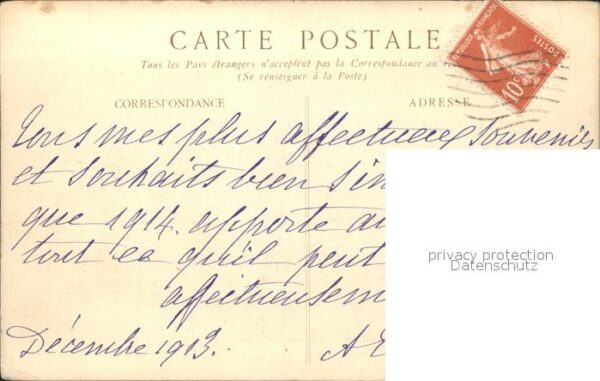 CARTE POSTALE
Tous les Pays étrangers n'acceptent pas la Correspondance au
(Se renseigner à la Poste)
CORRESPONDANCE
ADRESSE
RÉPUBLIQUE FRANÇAISE
POSTES
10c
Tous mes plus affectueux Souvenirs
et Souhaits bien Sin
que 1914. apporte au
tout ce qu'il peut
affectueusem
Décembre 1913.
A E
privacy protection
Datenschutz